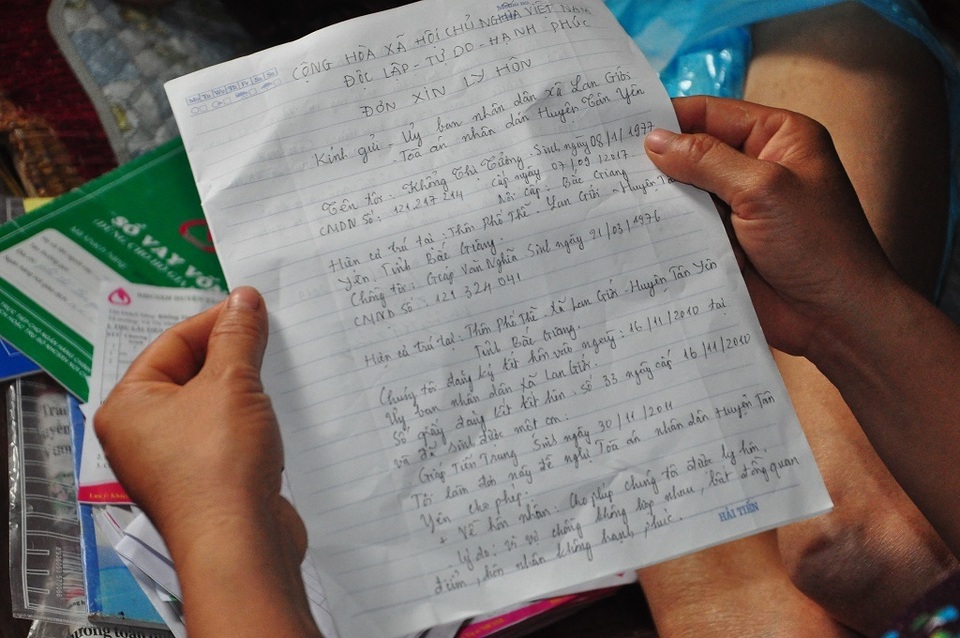 CỘNG HÒA XÃ HỘI CHỦ NGHĨA VIỆT NAM
ĐỘC LẬP - TỰ DO - HẠNH PHÚC
ĐƠN XIN LY HÔN
Kính gửi - Uỷ ban nhân dân xã Lan Giới
- Toà án nhân dân Huyện Tân Yên
Tên tôi: Khổng Thị Tưởng. Sinh ngày 08/11/1977
CMDN Số: 121 217 214 cấp ngày 07/09/2017
Nơi cấp: Bắc Giang
Hiện cư trú tại: Thôn Phố Thễ - Lan Giới - Huyện Tân
Yên, Tỉnh Bắc Giang.
Chồng tôi: Giáp Văn Nghĩa Sinh ngày 21/03/1976
CMND Số: 121 324 041
Hiện cư trú tại: Thôn Phố Thễ - Xã Lan Giới - Huyện Tân Yên
Tỉnh Bắc Giang.
Chúng tôi đăng ký kết hôn vào ngày: 16/11/2010 tại
Uỷ ban nhân dân xã Lan Giới.
Số giấy đăng kết kết hôn: số 33 ngày cấp 16/11/2010
và đẻ sinh được một con:
Giáp Tiến Trung Sinh ngày 30/11/2011
Tôi làm đơn này đề nghị Toà án nhân dân Huyện Tân
Yên cho phép:
+ Về hôn nhân: Cho phép chúng tôi được ly hôn
Lý do: vì vợ chồng không hợp nhau, bất đồng quan
điểm, hôn nhân không hạnh phúc.
HẢI TIẾN
SỔ VAY VỐN